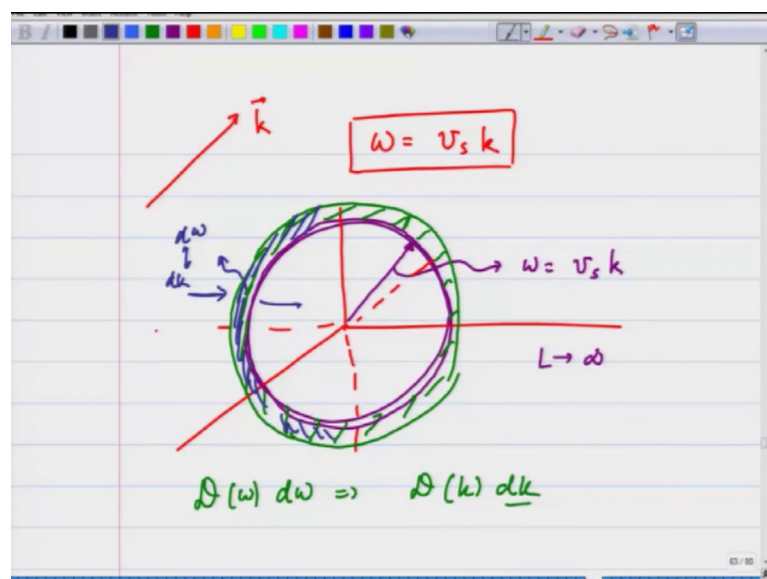 k⃗
ω = v_s k
dω
dk
ω = v_s k
L → ∞
D(ω) dω ⇒ D(k) dk
63 / 80